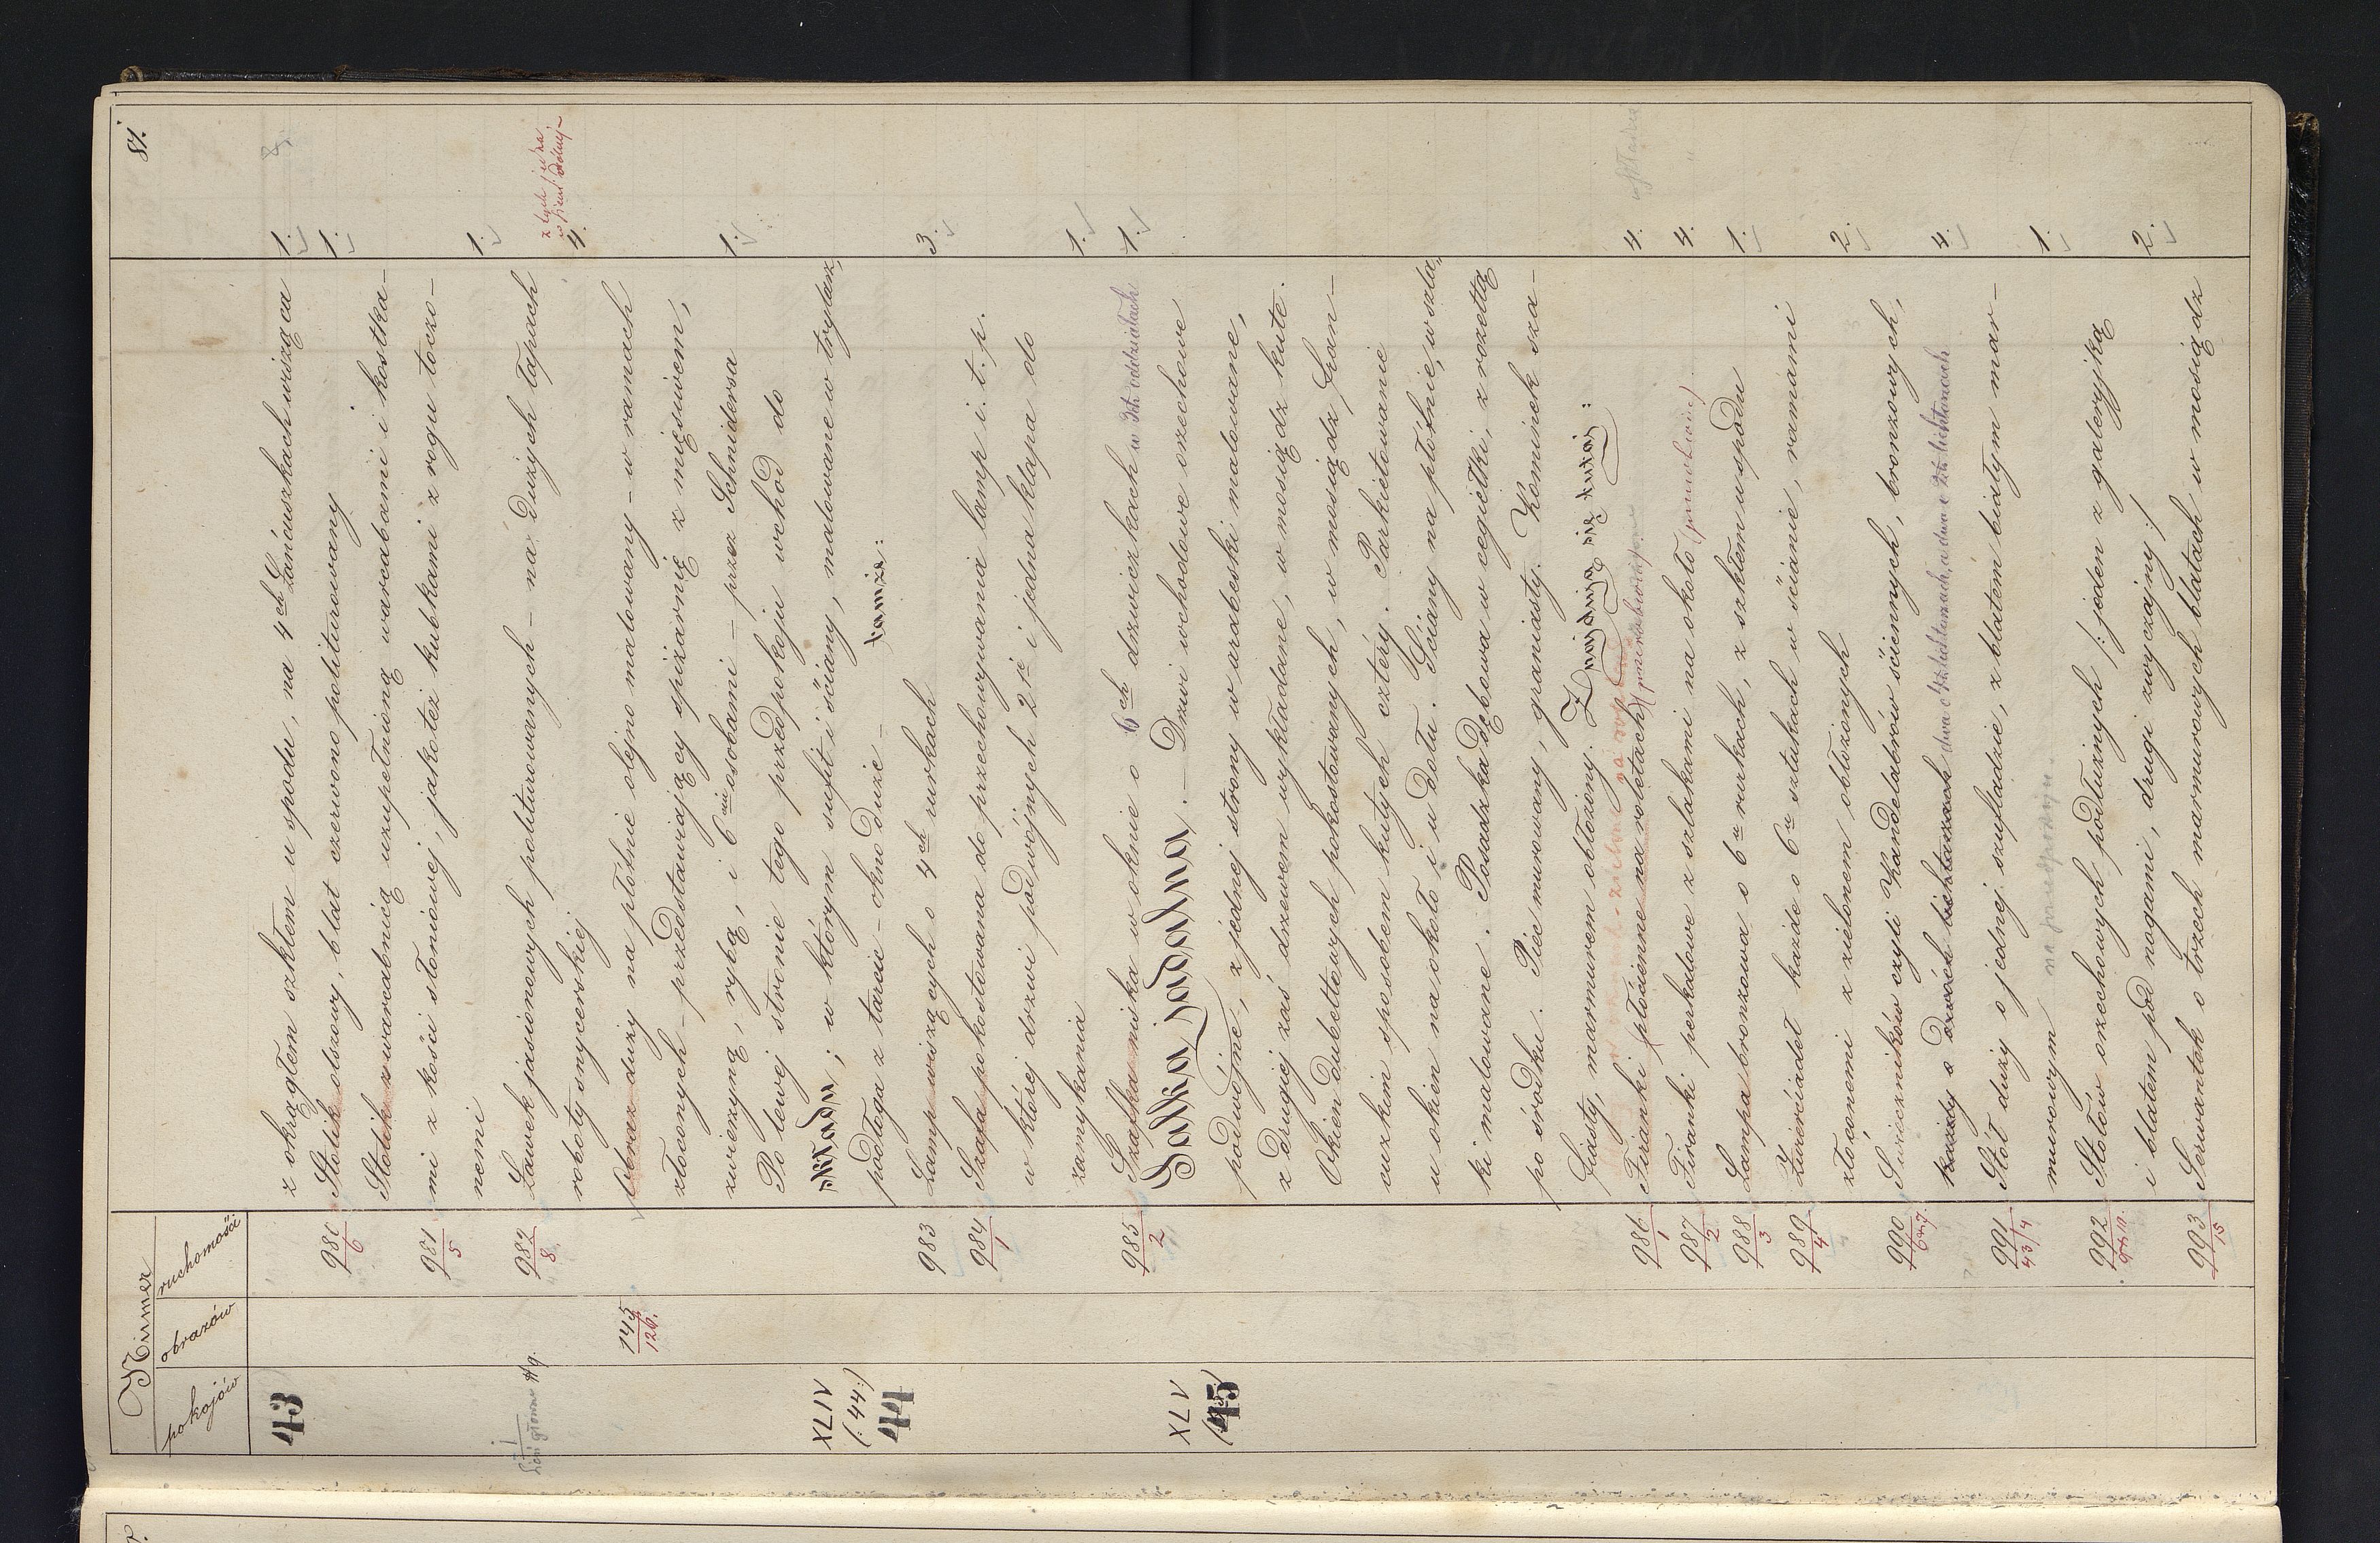 81.
Numer
pokojów obrazów ruchomości
43 z okrągłem szkłem u spodu, na 4ch Łańcuszkach wisząca 1.
980/6 Stolik olszowy, blat czerwono politurowany 1.
Stolik z warcabnicą uzupełnioną warcabami i kostka-
981/5 mi z kości słoniowej, jakoteż kubkami z rogu toczo-
nemi 1.
982/8 Ławek jasionowych politurowanych - na dużych łapach
roboty snycerskiej 4.
145/126. Obraz duży na płótnie olejno malowany - w ramach
złoconych - przedstawiający spiżarnię z mięsiwem,
zwierzyną, rybą, i 6ciu osobami - przez Schnidersa 1.
Po lewej stronie tego przedpokoju wchód do
XLIV (:44:) 44 składu; w którym sufit i ściany, malowane w trylarz,
podłoga z tarcic - okno duże - tamże:
983 Lamp wiszących o 4ch rurkach 3.
984/1 Szafa pokostowana do przechowywania lamp i. t. p.
w której drzwi podwójnych 2je i jedna klapa do
zamykania 1.
985/2 Szafka niska w oknie o 6ch drzwiczkach w 3ch oddziałach 1.
XLV 45 Salka jadalna. - Drzwi wchodowe orzechowe
podwójne, z jednej strony w arabeski malowane,
z drugiej zaś drzewem wykładane, w mosiądz kute.
Okien dubeltowych pokostowanych, w mosiądz fran-
cuzkim sposobem kutych cztéry. Parkietowanie
u okien na około i u dołu. Ściany na płótnie, w szla,,
ki malowane. Posadzka dębowa w cegiełki, z rozettą
po środku. Piec murowany, graniasty. Kominek sza-
fiasty, marmurem obłożony. Znajduje się tutaj:
986/1 Firanki płócienne na roletach 4.
987/2 Firanki perkalowe z szlakami na około 4.
988/3 Lampa bronzowa o 6u rurkach, z szkłem u spodu 1.
989/4 Zwierciadeł każde o 6u sztukach w ścianie, ramami
złoconemi z zielonem obłożonych 2.
990/6 i 7. Świeczników czyli Kandelabrów ściennych, bronzowych,
każdy o dwóch lichtarzach dwa o 4ch lichtarzach, a dwa o 2ch lichtarzach 4.
991/43/4 Stół duży o jednej szufladzie, z blatem białym mar-
murowym na przedpokoju. 1.
992 Stołów orzechowych podłużnych /: jeden z galeryjką
i blatem pod nogami, drugi zwyczajny :/ 2.
993/15 Serwantek o trzech marmurowych blatach w mosiądz